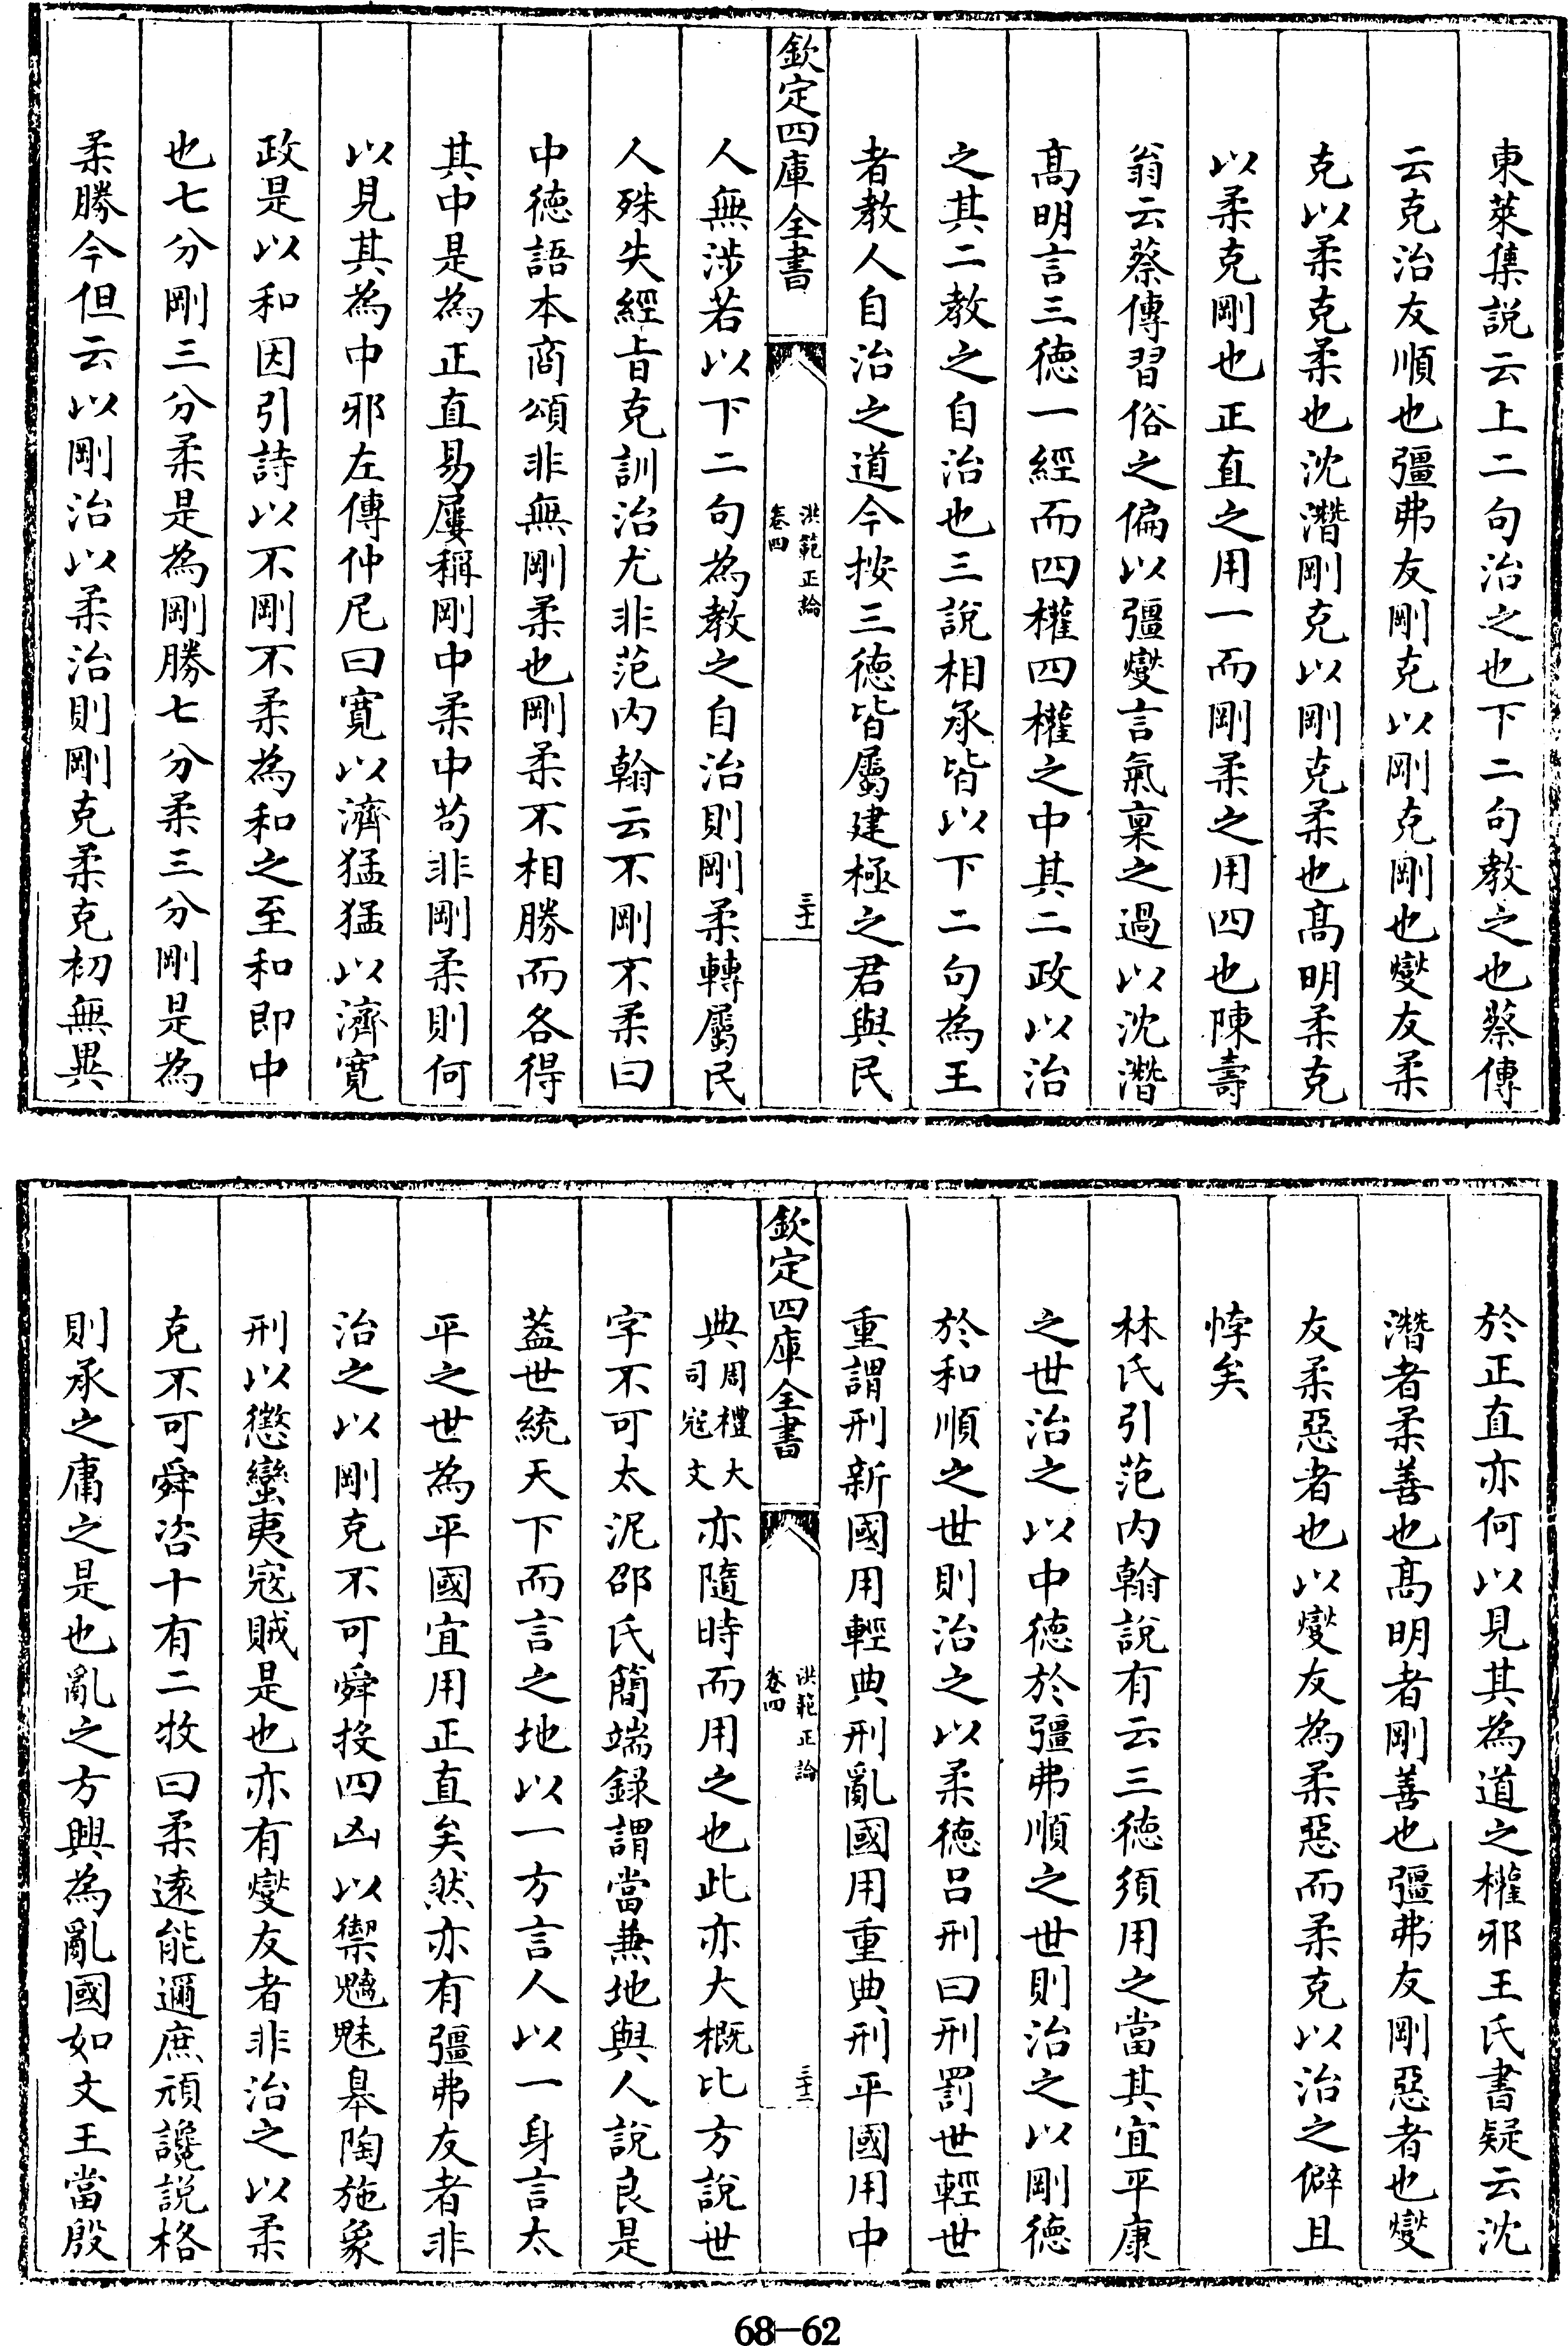 東萊集説云上二句治之也下二句教之也蔡傳
云克治友順也彊弗友剛克以剛克剛也燮友柔
克以柔克柔也沈潛剛克以剛克柔也髙明柔克
以柔克剛也正直之用一而剛柔之用四也陳壽
翁云蔡傳習俗之偏以彊燮言氣稟之過以沈潛
髙明言三徳一經而四權四權之中其二政以治
之其二教之自治也三說相承皆以下二句為王
者教人自治之道今按三徳皆屬建極之君與民
欽定四庫全書
洪範正論
卷四
三十一
人無涉若以下二句為教之自治則剛柔轉屬民
人殊失經旨克訓治尤非范内翰云不剛不柔曰
中徳語本商頌非無剛柔也剛柔不相勝而各得
其中是為正直易屢稱剛中柔中苟非剛柔則何
以見其為中邪左傳仲尼曰寛以濟猛猛以濟寛
政是以和因引詩以不剛不柔為和之至和即中
也七分剛三分柔是為剛勝七分柔三分剛是為
柔勝今但云以剛治以柔治則剛克柔克初無異
於正直亦何以見其為道之權邪王氏書疑云沈
潛者柔善也髙明者剛善也彊弗友剛惡者也燮
友柔惡者也以燮友為柔惡而柔克以治之僻且
悖矣
林氏引范内翰說有云三徳須用之當其宜平康
之世治之以中徳於彊弗順之世則治之以剛徳
於和順之世則治之以柔徳呂刑曰刑罰世輕世
重謂刑新國用輕典刑亂國用重典刑平國用中
欽定四庫全書
洪範正論
卷四
三十二
典周禮大司寇文亦隨時而用之也此亦大概比方說世
字不可太泥邵氏簡端録謂當兼地與人說良是
葢世統天下而言之地以一方言人以一身言太
平之世為平國宜用正直矣然亦有彊弗友者非
治之以剛克不可舜投四凶以禦魑魅臯陶施象
刑以懲蠻夷寇賊是也亦有燮友者非治之以柔
克不可舜咨十有二牧曰柔逺能邇庶頑讒説格
則承之庸之是也亂之方興為亂國如文王當殷
68-62